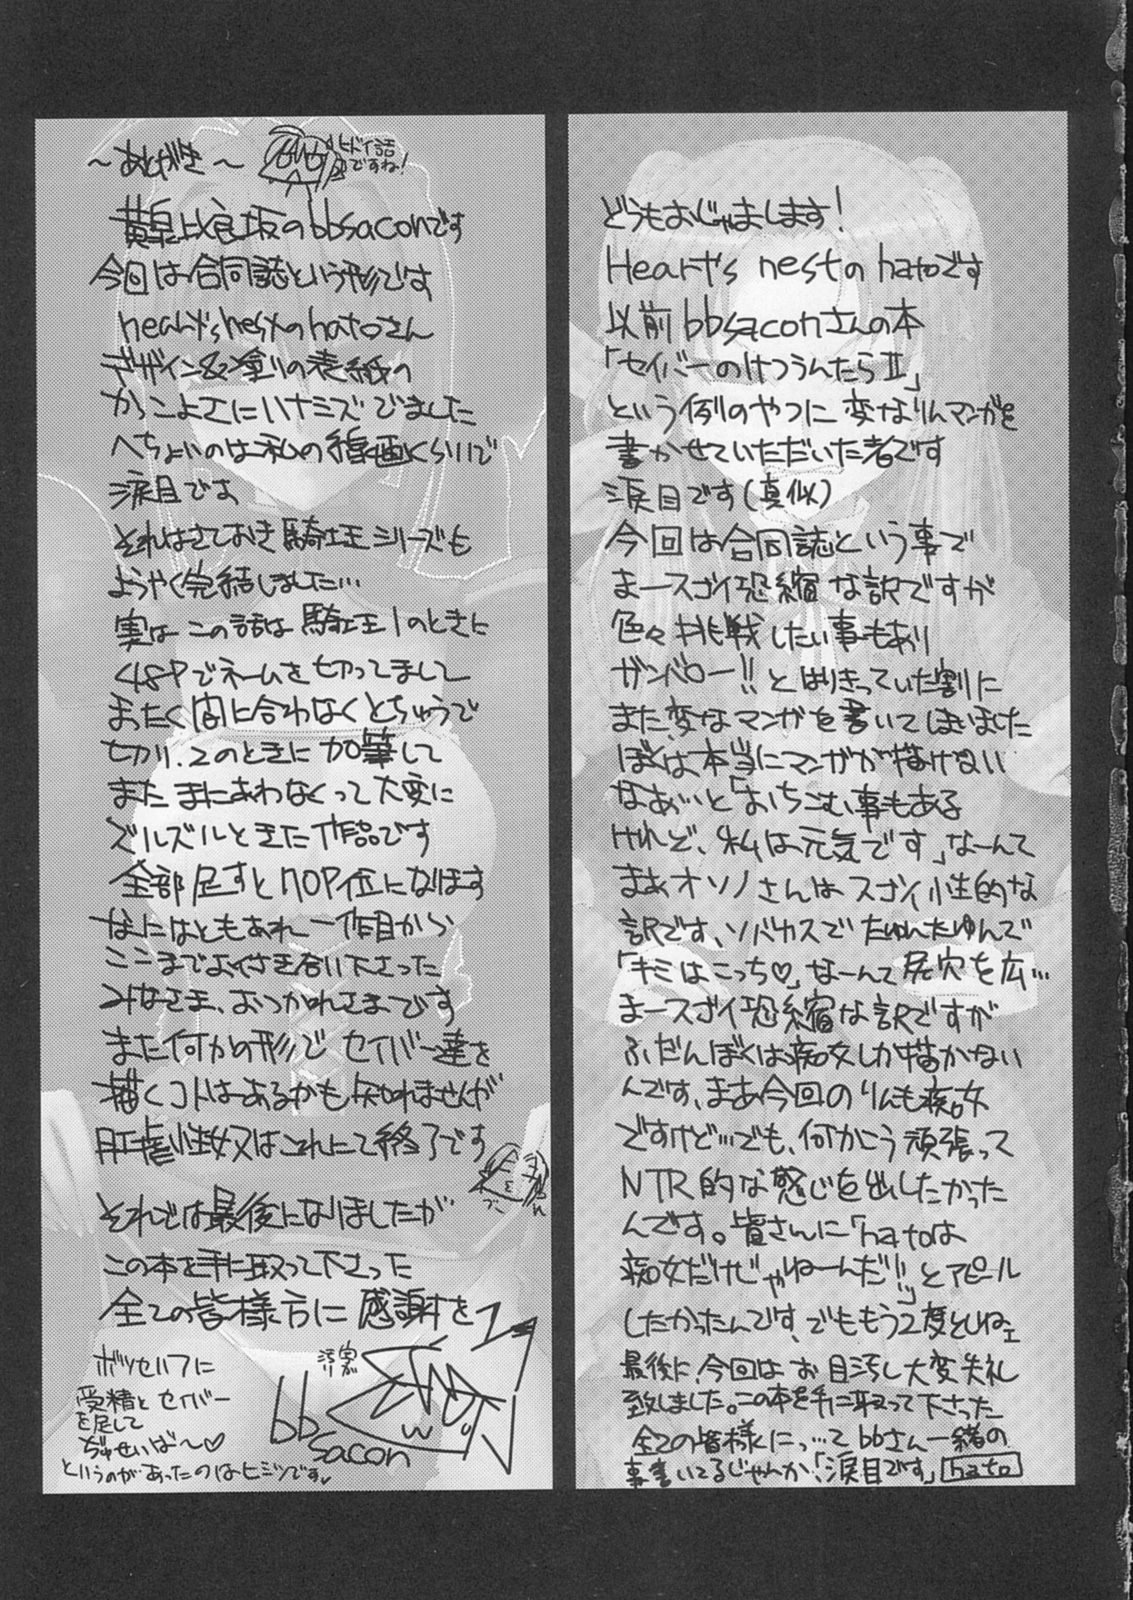 ～あとがき～
ヒドイ話
ですね!
黄泉比良坂のbbsaconです
今回は合同誌という形です
heart'snestのhatoさん
デザイン&塗りの表紙の
かっこよさにハナミズでました
へちょいのは私の線画くらいで
涙目です
それはさておき騎士王シリーズも
ようやく完結しました…
実はこの話は騎士王1のときに
48Pでネームを切ってまして
まったく間に合わなくとちゅうで
切り、2のときに加筆して
またまにあわなくって大変に
ズルズルときた作品です
全部足すと110P位になります
なにはともあれ一作目から
ここまでよく付き合い下さった
みなさま、おつかれさまです
また何かの形でセイバー達を
描くコトはあるかも知れませんが
肛虐性奴又はこれにて終了です
それでは最後になりましたが
この本を手に取って下さった
全ての皆様方に感謝を
ボツセリフに
受精とセイバー
を足して
ぢゅせいば～♡
というのがあったのはヒミツです
bb
sacon
どうもおじゃまします!
Heart's nestのhatoです
以前bbsaconさんの本
「セイバーのけつうんたらⅡ」
という例のやつに変なりんマンガを
書かせていただいた者です
涙目です(真似)
今回は合同誌という事で
まースゴイ恐縮な訳ですが
色々挑戦したい事もあり
ガンバロー!!とはりきっていた割に
また変なマンガを書いてしまいました
ぼくは本当にマンガが描けない
なあ、と「おちこむ事もある
けれど、私は元気です」なーんて
まあオソノさんはスゴイ性的な
訳です、ソバカスでたゆんたゆんで
「キミはこっち♡」なーんて尻穴を広…
まースゴイ恐縮な訳ですが
ふだんぼくは痴女しか描かない
んです、まあ今回のりんも痴女
ですけど…でも、何かこう頑張って
NTR的な感じを出したかった
んです。皆さんに「hatoは
痴女だけじゃねーんだ!!」とアピール
したかったんです、でももう2度としねェ
最後に、今回はお目汚し大変失礼
致しました。この本を手に取って下さった
全ての皆様に…ってbbさん一緒の
事書いてるじゃんか、「涙目です」hato